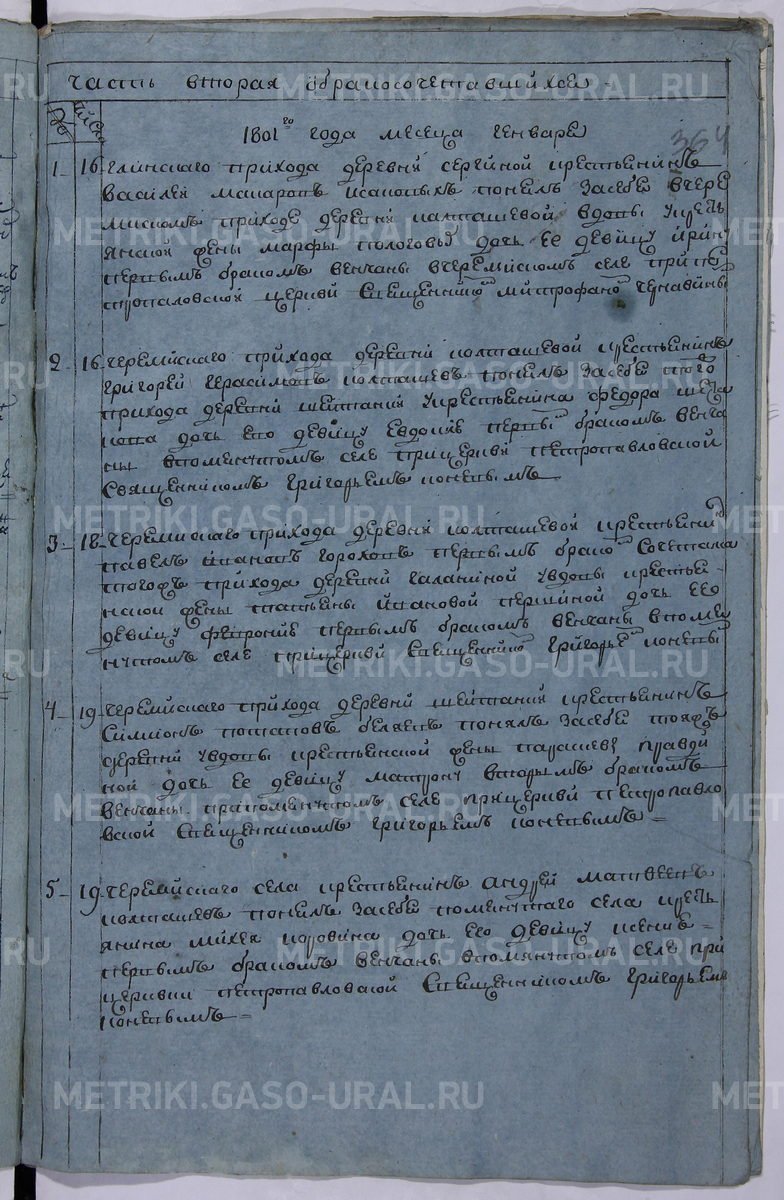 часть вторая обракосочетавшихся
1801го года месеца генваря
364
1 16 глинскаго прихода деревни сергиной крестьянинъ
василей макаровъ исаковыхъ понялъ засебя вчере
мискомъ приходе деревни колташевой вдовы укресть
янской жены марфы пологовы дочь ее девицу ирин
первымъ бракомъ венчаны вчеремискомъ селе при пе
тропаловской церкви священникомъ митрофаном чернавины
2 16 черемискаго прихода деревни колташевой крестьянинъ
григорей герасимовъ колташевъ понялъ засебя того
прихода деревни шайтанки укрестьянина федора
дочь его девицу евдокию первы бракомъ венча
ны впомянутомъ селе прицеркви петропавловской
священникомъ григорьемъ коневымъ
3 18 черемискаго прихода деревни колташевой крестьянин
павелъ ивановъ гороховъ первымъ брако сочетался
тогожъ прихода деревни галаниной увдовы крестья
нской жены татьяны ивановой першиной дочь ее
девицу февронию первымъ бракомъ венчаны впомя
нутомъ селе прицеркви священнико григорье коневы
4 19 черемискаго прихода деревни шайтанки крестьянинъ
симионъ потаповъ беляевъ понялъ засебя тояжъ
деревни увдовы крестьянской жены
ной дочь ее девицу матрону вторымъ бракомъ
венчаны впомянутомъ селе прицеркви петропавло
вской священникомъ григорьемъ коневымъ
5 19 черемискаго села крестьянинъ андрей матвеевъ
колташевъ понялъ засебя помянутаго села кресть
янина михея коровина дочь его девицу ксению
первымъ бракомъ венчаны впомянутомъ селе при
церкви петропавловской священникомъ григорьемъ
коневымъ
METRIKI.GASO-URAL.RU